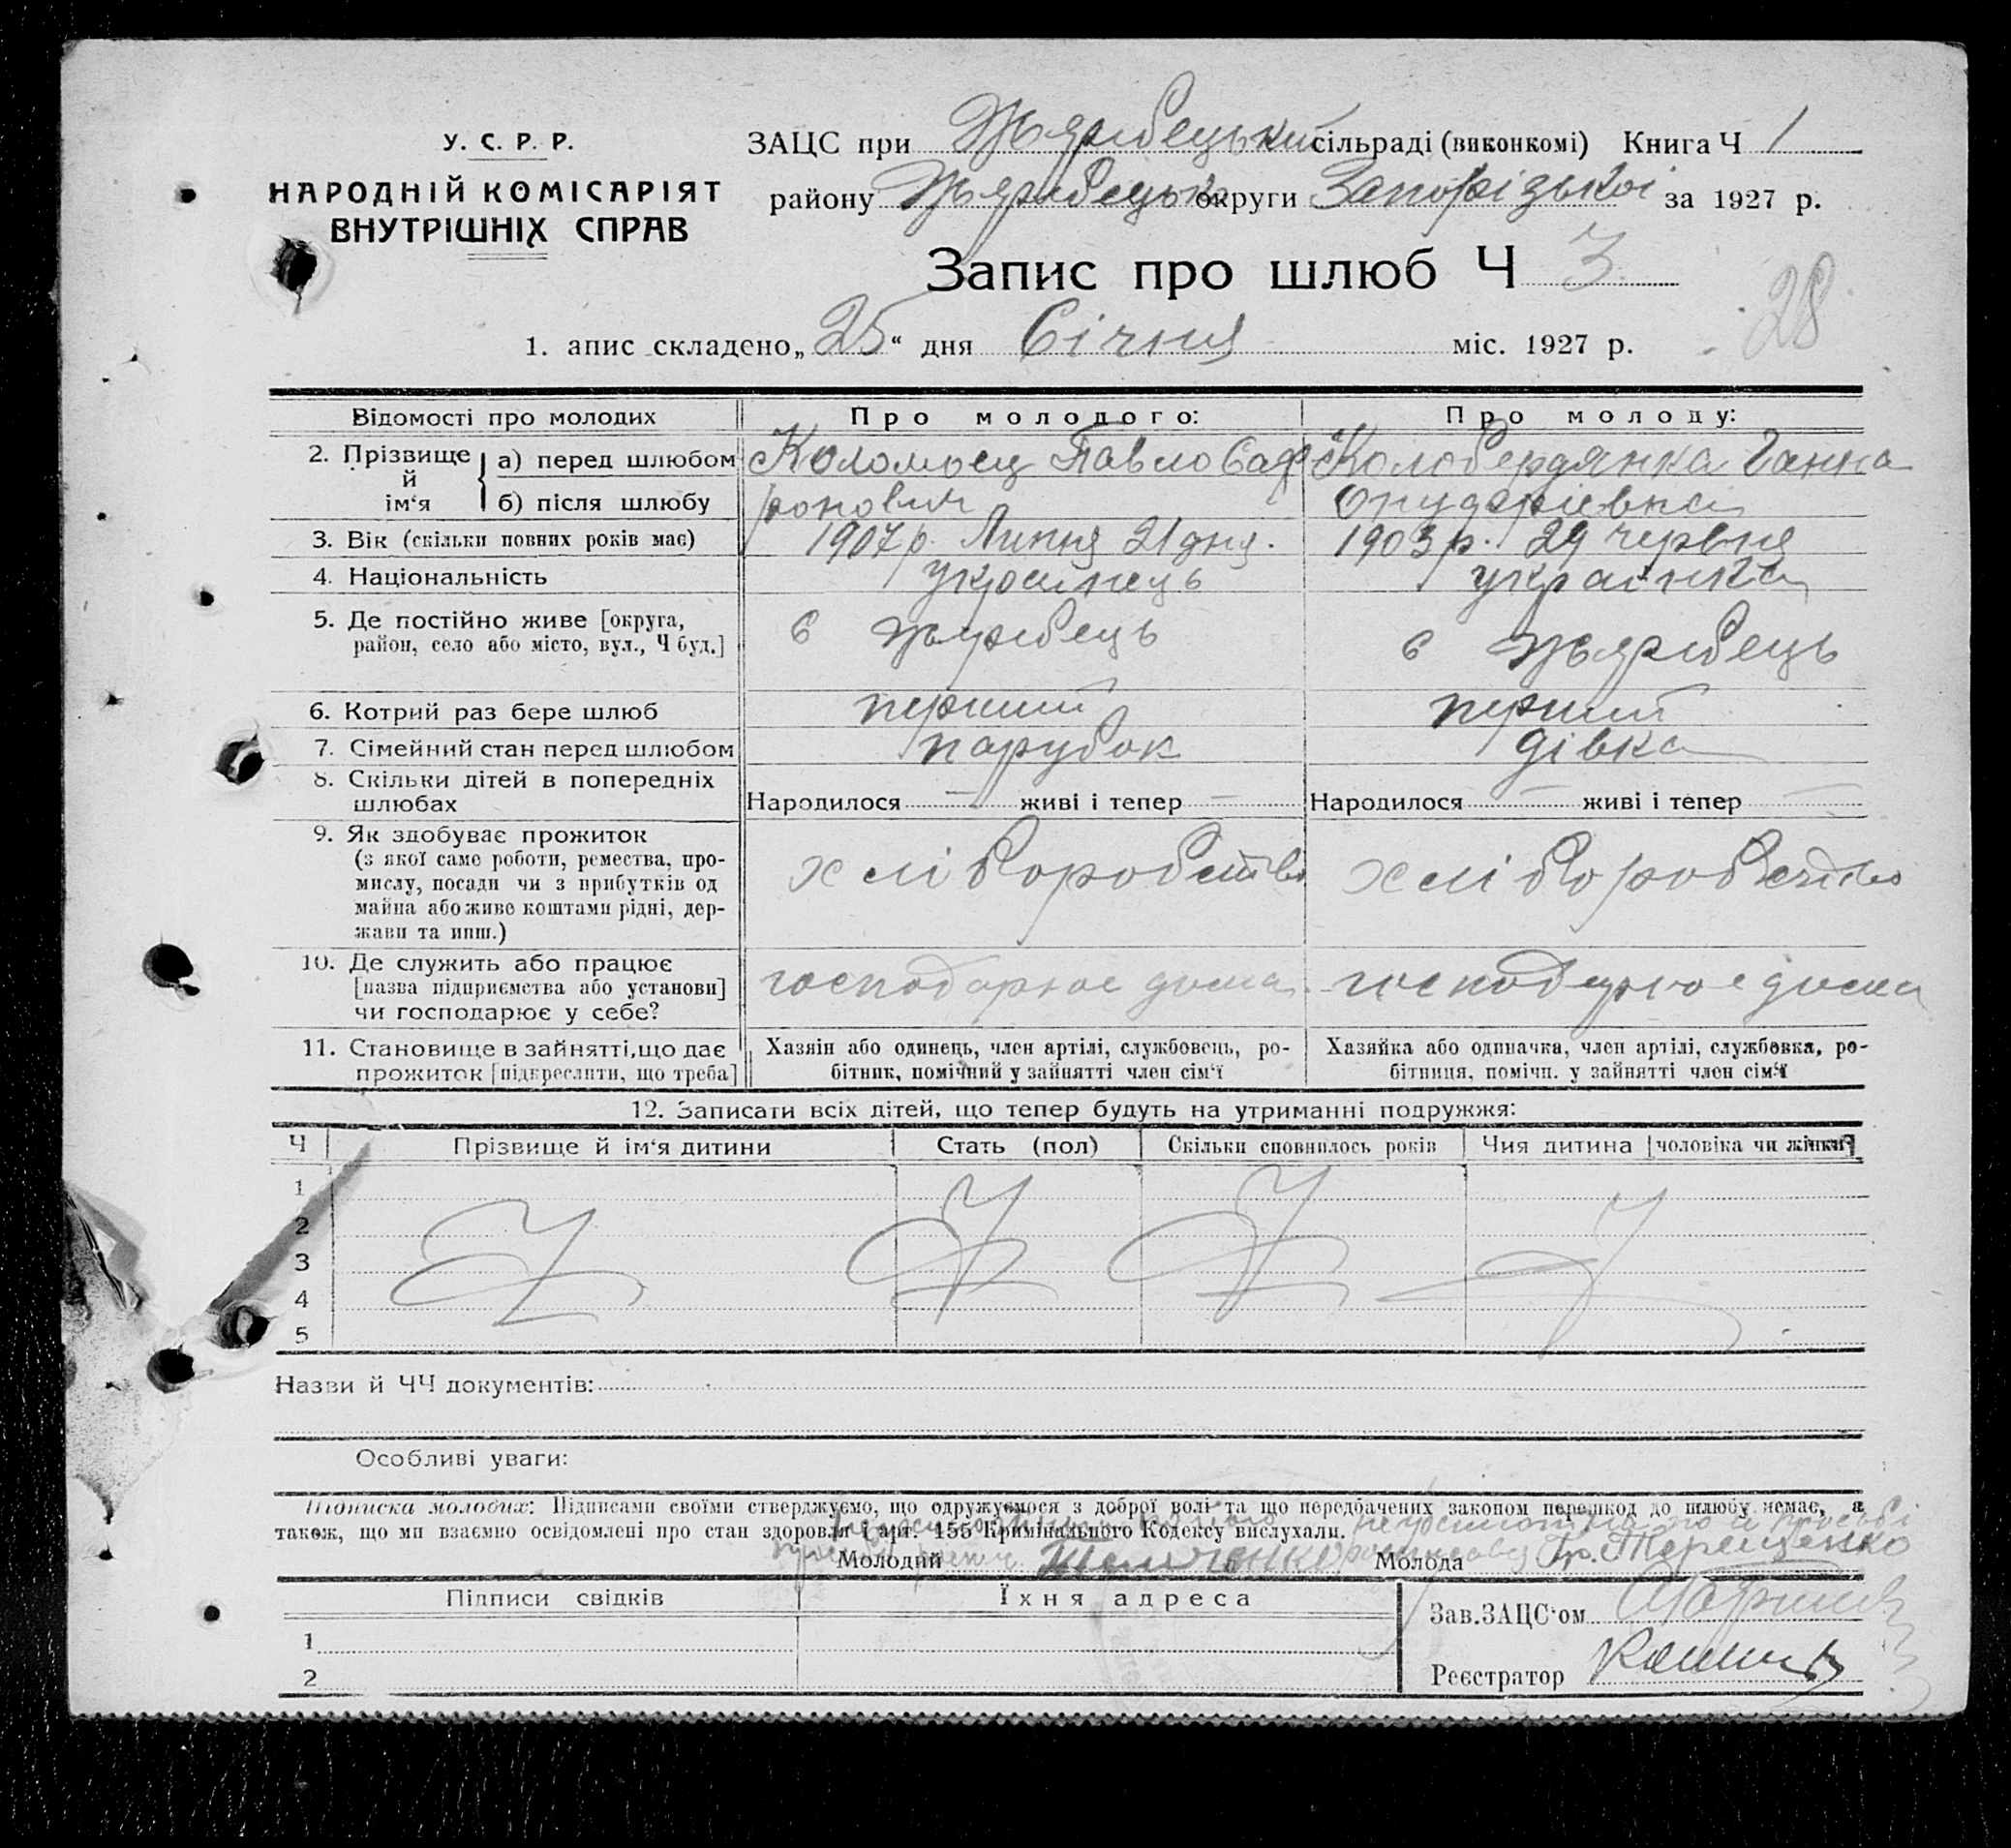 У. С. Р. Р.
НАРОДНІЙ КОМІСАРІЯТ
ВНУТРІШНІХ СПРАВ
ЗАЦС при Жеребецький сільраді (виконкомі) Книга Ч 1
району Жеребецьк округи Запорізької за 1927 р.
Запис про шлюб Ч 3
28
1. апис складено „25“ дня Січня міс. 1927 р.
Відомості про молодих Про молодого: Про молоду:
2. Прізвище й ім‘я а) перед шлюбом Коломоец Павло Саф Колобердянка Ганна
б) після шлюбу ронович
3. Вік (скільки повних років має) 1907 р. Липня 21 дня. 1903 р. 29 червня
4. Національність украінець украінка
5. Де постійно живе [округа, район, село або місто, вул., Ч буд.] с Жеребець с Жеребець
6. Котрий раз бере шлюб перший перший
7. Сімейний стан перед шлюбом парубок дівка
8. Скільки дітей в попередніх шлюбах Народилося — живі і тепер — Народилося — живі і тепер —
9. Як здобуває прожиток
(з якої саме роботи, ремества, про-
мислу, посади чи з прибутків од хліборобство хліборобство
майна або живе коштами рідні, дер-
жави та инш.)
10. Де служить або працює
[назва підприємства або установи] господарює дома господарює дома
чи господарює у себе?
11. Становище в зайнятті, що дає Хазяїн або одинець, член артілі, службовець, ро- Хазяйка або одиначка, член артілі, службовка, ро-
прожиток [підкреслити, що треба] бітник, помічний у зайнятті член сім‘ї бітниця, помічн. у зайнятті член сім‘ї
12. Записати всіх дітей, що тепер будуть на утриманні подружжя:
Ч Прізвище й ім‘я дитини Стать (пол) Скільки сповнилось років Чия дитина [чоловіка чи жінки]
1
2
3
4
5
Назви й ЧЧ документів:
Особливі уваги:
Підписка молодих: Підписами своїми стверджуємо, що одружуємося з доброї волі та що передбачених законом перешкод до шлюбу немає, а
також, що ми взаємно освідомлені про стан здоровля і арт. 155 Кримінального Кодексу вислухали.
Молодий Молода Терещенко
Підписи свідків Їхня адреса Зав.ЗАЦС‘ом
1
2 Реєстратор